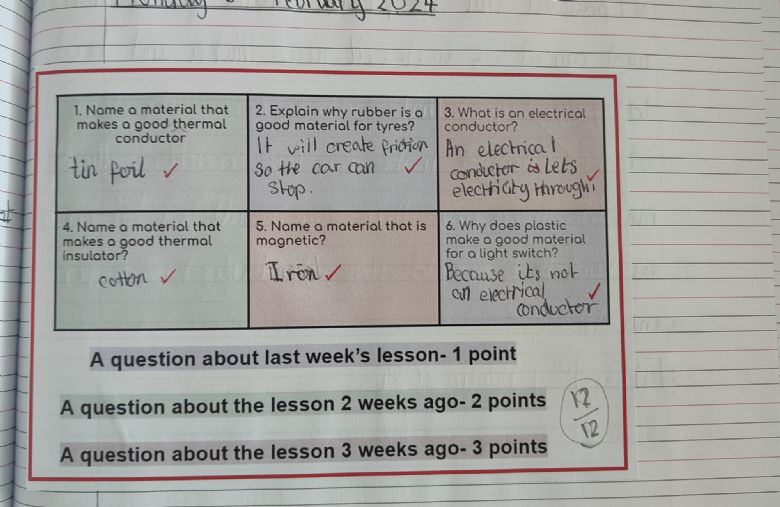 February 2024
1. Name a material that
makes a good thermal
conductor
tin foil
2. Explain why rubber is a
good material for tyres?
It will create friction
so the car can
stop.
3. What is an electrical
conductor?
An electrical
conductor is Lets
electricity through
4. Name a material that
makes a good thermal
insulator?
cotton
5. Name a material that is
magnetic?
Iron
6. Why does plastic
make a good material
for a light switch?
Because its not
an electrical
conductor
A question about last week's lesson- 1 point
A question about the lesson 2 weeks ago- 2 points
A question about the lesson 3 weeks ago- 3 points
12
12